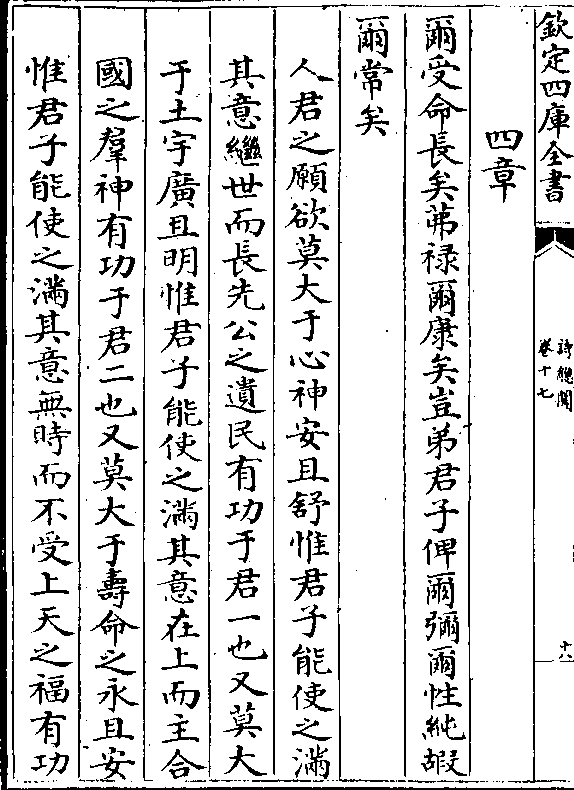 欽定四庫全書
詩總聞
卷十七
十八
四章
爾受命長矣茀祿爾康矣豈弟君子俾爾彌爾性純嘏
爾常矣
人君之願欲莫大于心神安且舒惟君子能使之滿
其意繼世而長先公之遺民有功于君一也又莫大
于土宇廣且明惟君子能使之滿其意在上而主合
國之羣神有功于君二也又莫大于壽命之永且安
惟君子能使之滿其意無時而不受上天之福有功